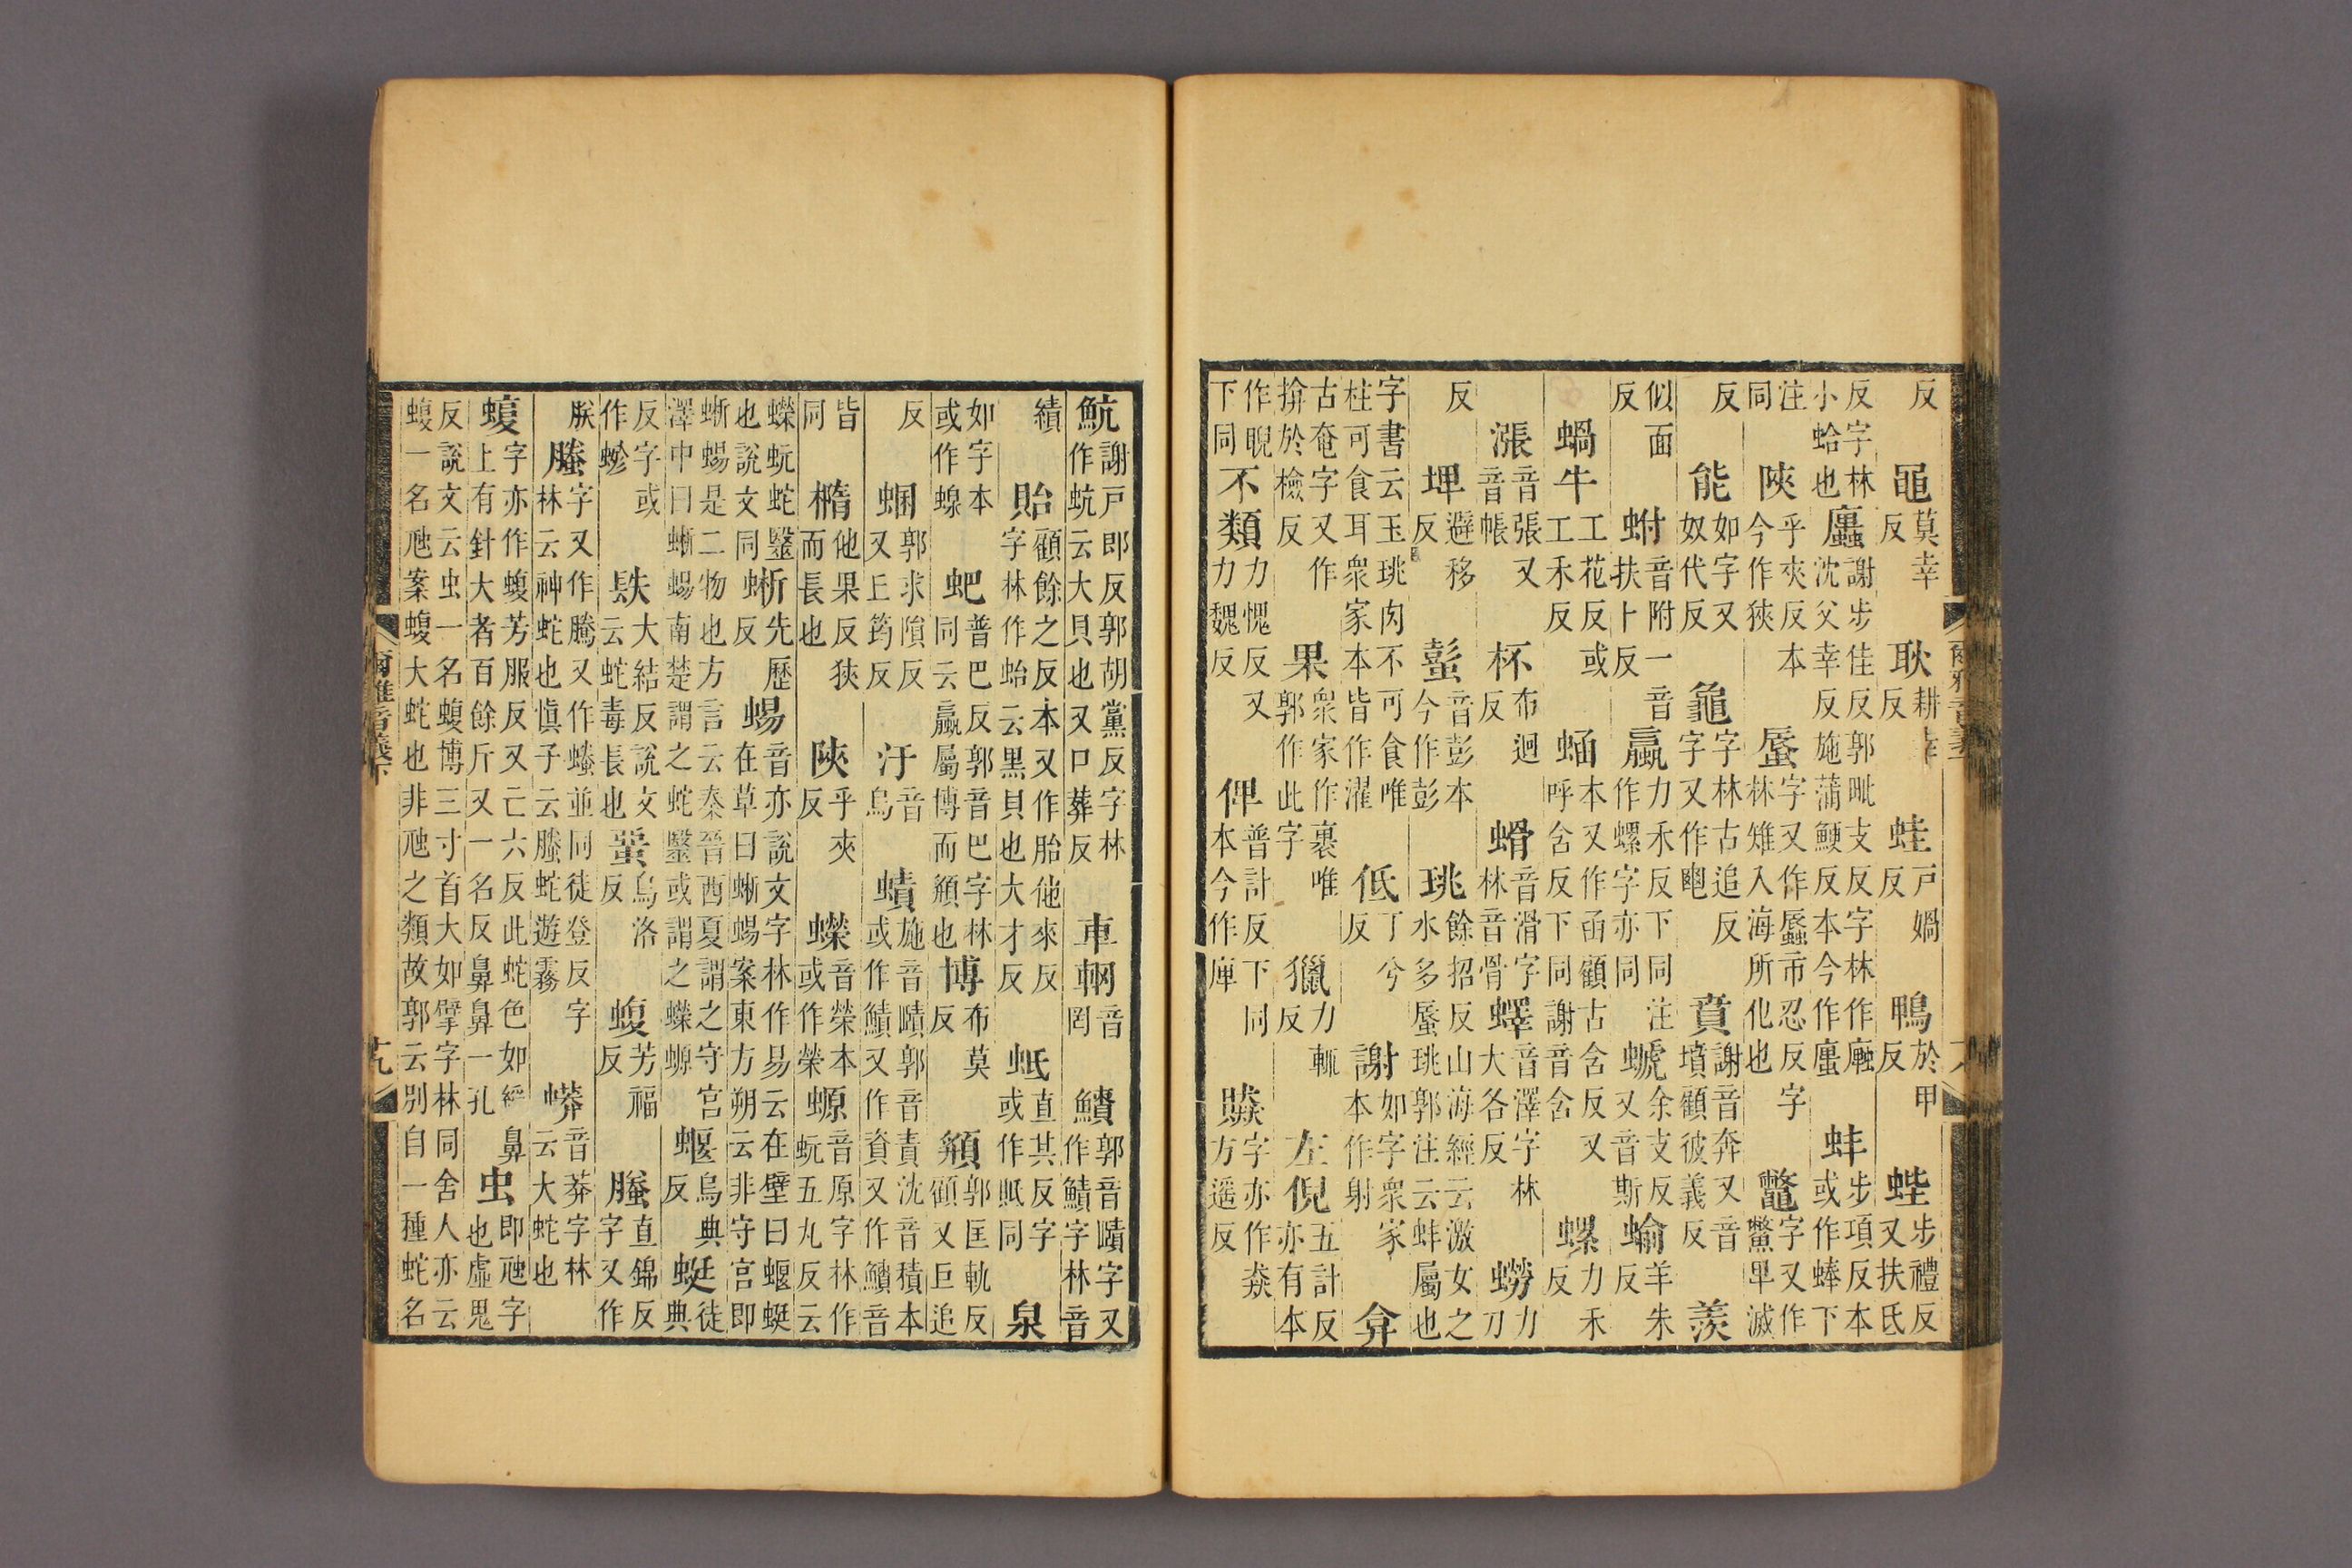 反黽莫幸反耿耕幸反蛙戶媧反鴨於甲反蜌步禮反又扶氐
反字林小蛤也蠯謝步佳反郭毗支反字林作沈父幸反施蒲鯁反本今作蠯蚌步項反本或作蜯下
注同陜乎夾反本今作狹蜃字又作蜄市忍反字林雉入海所化也鼈字又作鱉卑滅
反能如字又奴代反龜字林古追反字又作賁謝音奔又音墳顧彼義反羨
似面反蚹音附一音扶卜反蠃力禾反下同注作螺字亦同螔余支反又音斯蝓羊朱反
蝸牛工花反或工禾反蛹本又作函顧古含反又呼含反下同謝音含螺力禾反
漲音張又音帳杯布迴反螖音滑字林音骨蠌音澤字林大各反蟧力刀
反埤避移反蟚音彭本今作彭珧餘招反山海經云激女之水多蜃珧郭注云蚌屬也
字書云玉珧肉不可食唯柱可食耳眾家本皆作濯低丁兮反謝如字眾家本作射弇
古奄字又作揜於檢反果眾家作裹唯郭作此字獵力輒反左倪五計反亦有本
作睨下同不類力愧反又力魏反俾普計反下同本今作庳贆字亦作猋方遥反
魧謝戶郎反郭胡黨反字林作蚢云大貝也又口葬反車輞音罔鰿郭音賾字又作鯖字林音
績貽顧餘之反本又作胎他來反字林作蛤云黑貝也大才反蚳直其反字或作貾同泉
如字本或作線蚆普巴反郭音巴字林同云蠃屬博而頯也博布莫反頯郭匡軌反顧又巨追
反蜠郭求隕反又丘筠反汙音烏蟦施音賾郭音責沈音積本或作鰿又作資又作鱝音
皆同橢他果反狹而長也陜乎夾反蠑音榮本或作榮螈音原字林作蚖五丸反云
蠑蚖蛇蠥也說文同蜥先歷反蜴音亦說文字林作易云在壁曰蝘蜓在草曰蜥蜴案東方朔云非守宮即
蜥蜴是二物也方言云秦晉西夏謂之守宮澤中曰蜥蜴南楚謂之蛇醫或謂之蠑螈蝘烏典反蜓徒典
反字或作镻大結反說文云蛇毒長也蝁烏洛反蝮芳福反螣直錦反字又作
朕螣字又作騰又作並同徒登反字林云神蛇也慎子云螣蛇遊霧蟒音莽字林云大蛇也
蝮字亦作蝮芳服反又亡六反此蛇色如綬鼻上有針大者百餘斤又一名反鼻鼻一孔虫即虺字也虛鬼
反說文云虫一名蝮博三寸首大如擘字林同舍人亦云蝮一名虺案蝮大蛇也非虺之類故郭云別自一種蛇名
爾雅音義下